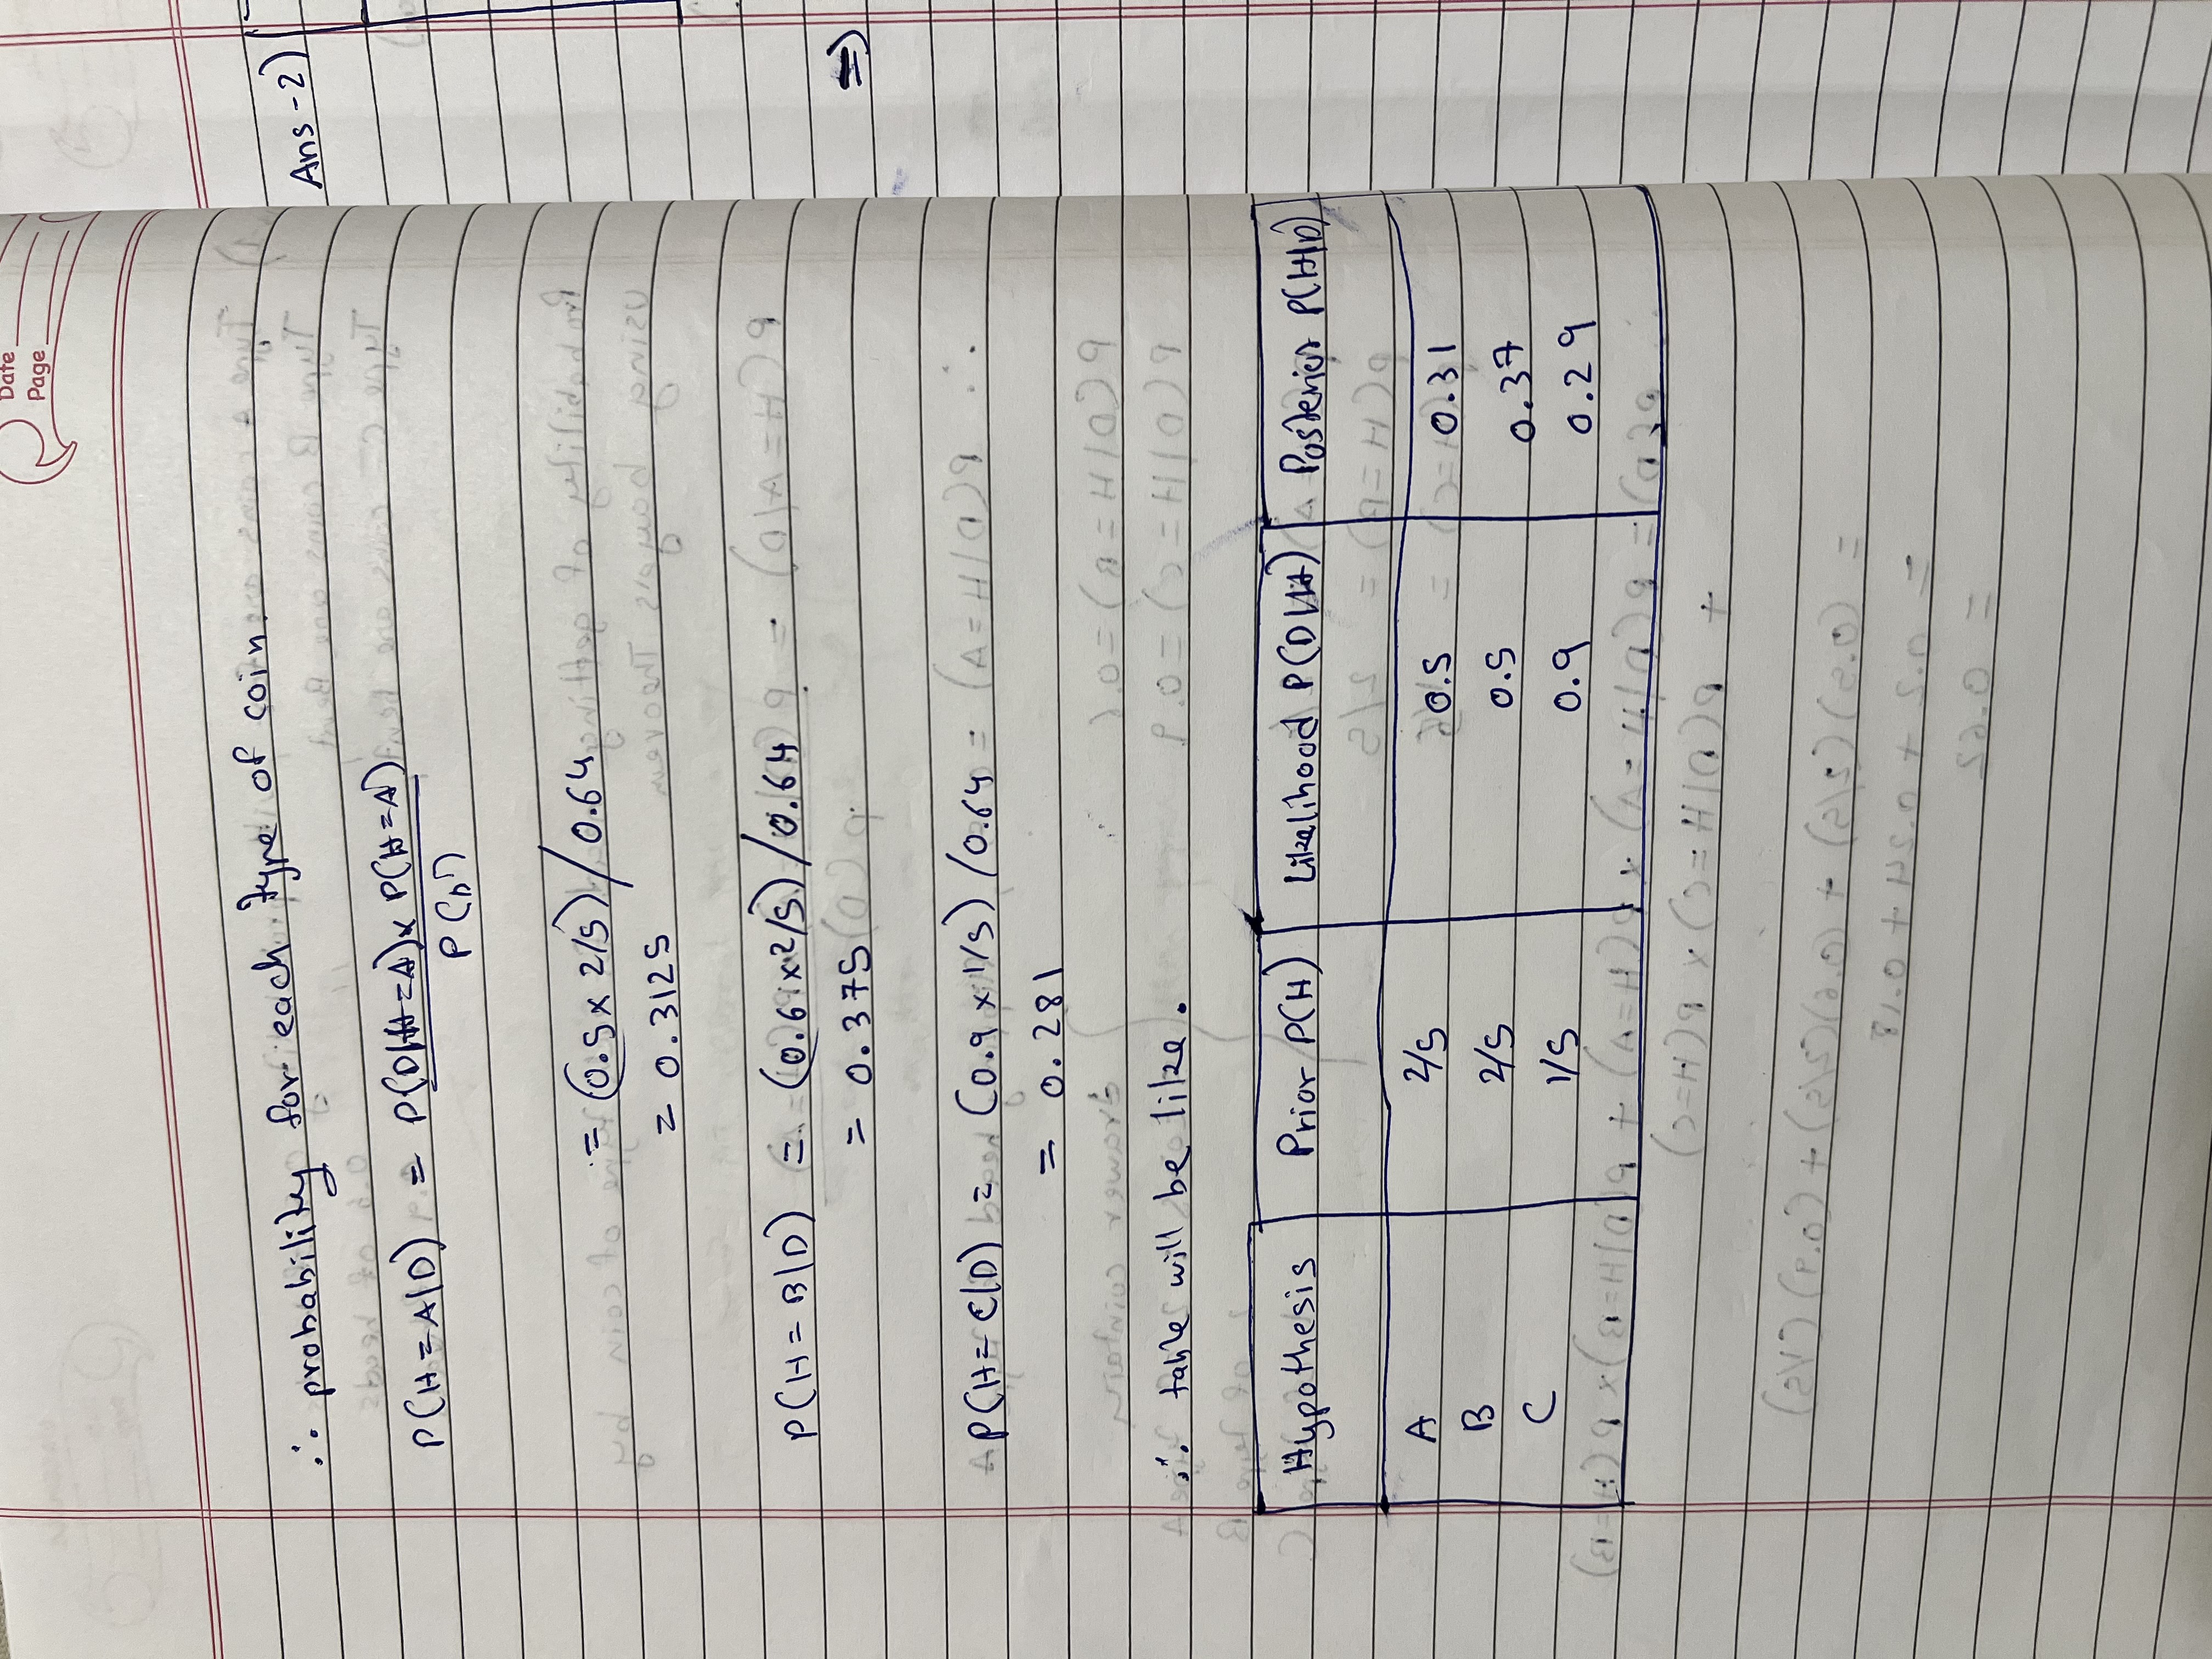 Date
Page
∴ probability for each type of coin.
P(H=A|D) = P(D|H=A)x P(H=A)
P(D)
= (0.5x 2/5)/0.64
= 0.3125
P(H=B|D) = (0.6x2/5)/0.64
= 0.375
P(H=C|D) = (0.9x1/5)/0.64
= 0.281
∴ table will be like.
Hypothesis Prior P(H) Likelihood P(D|H) Posterior P(H|D)
A 2/5 0.5 0.31
B 2/5 0.5 0.37
C 1/5 0.9 0.29
Ans-2)
⇒)